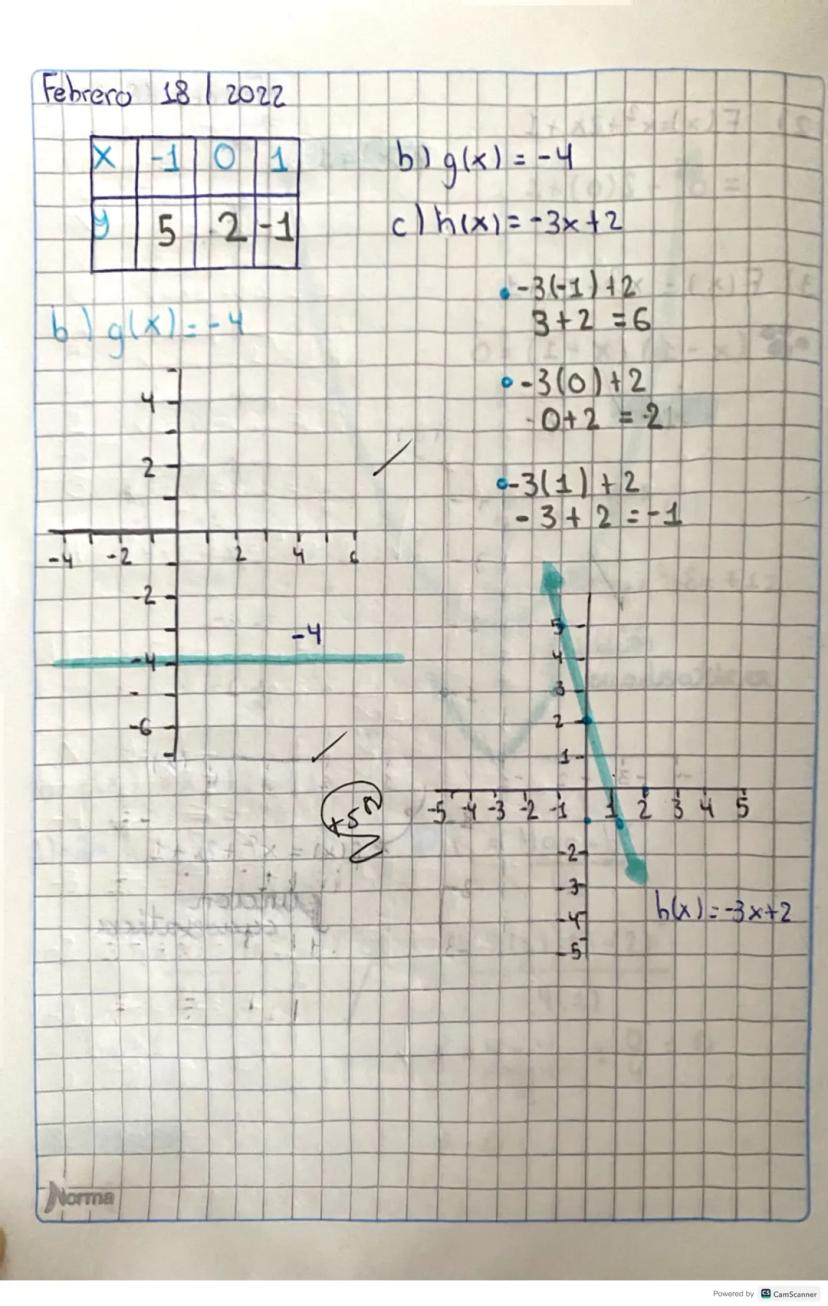 Febrero 18 / 2022
x -1 0 1
y 5 2 -1
b) g(x) = -4
c) h(x) = -3x+2
-3(-1)+2
3+2 = 6
-3(0)+2
0+2 = 2
-3(1)+2
-3+2 = -1
b) g(x) = -4
4
2
-4 -2 2 4 6
-2
-4
-4
-6
5
4
3
2
1
-5 -4 -3 -2 -1 1 2 3 4 5
-2
-3
-4
-5
h(x) = -3x+2
+5
Norma
Powered by CS CamScanner